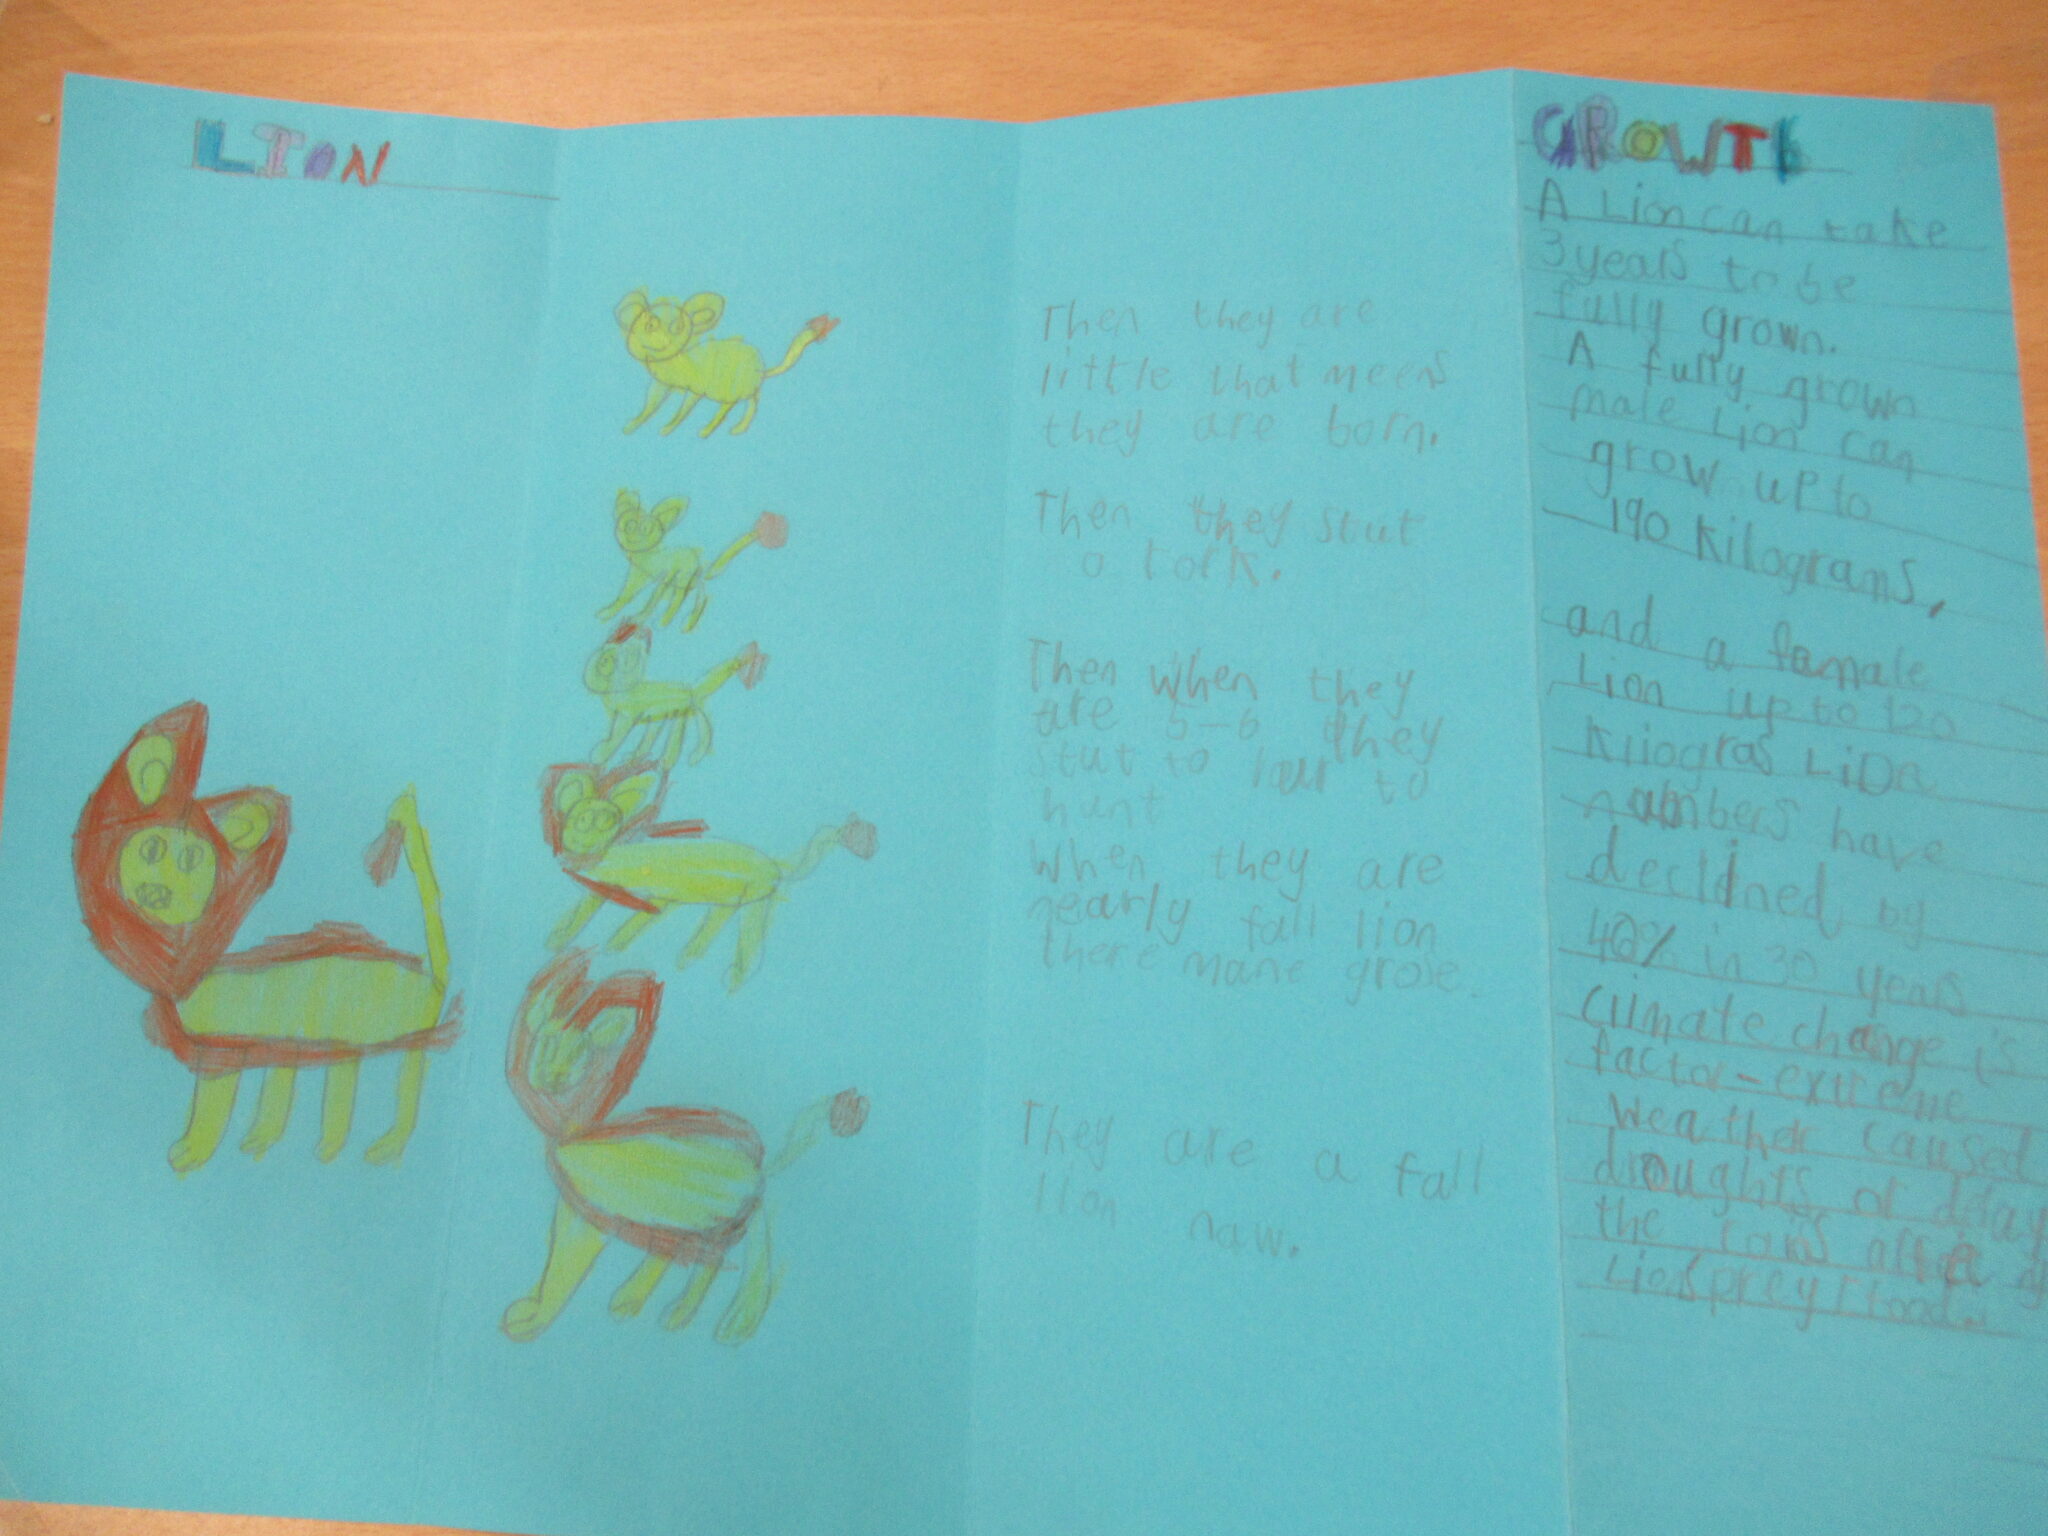 LION
Then they are
little that meens
they are born.
Then they stut
a tork.
Then when they
are 5-6 they
stut to to
hunt
When they are
nearly fall lion
there mane grose.
They are a fall
lion naw.
GROWTh
A Lion can take
3 years to be
fully grown.
A fully grown
male Lion can
grow up to
190 kilograms,
and a famale
Lion up to 120
Kilogras Lion
numbers have
declined by
40% in 30 years
Climate change is
factor-extreme
Weather caused
droughts or delay
the rains
Lions prey food.